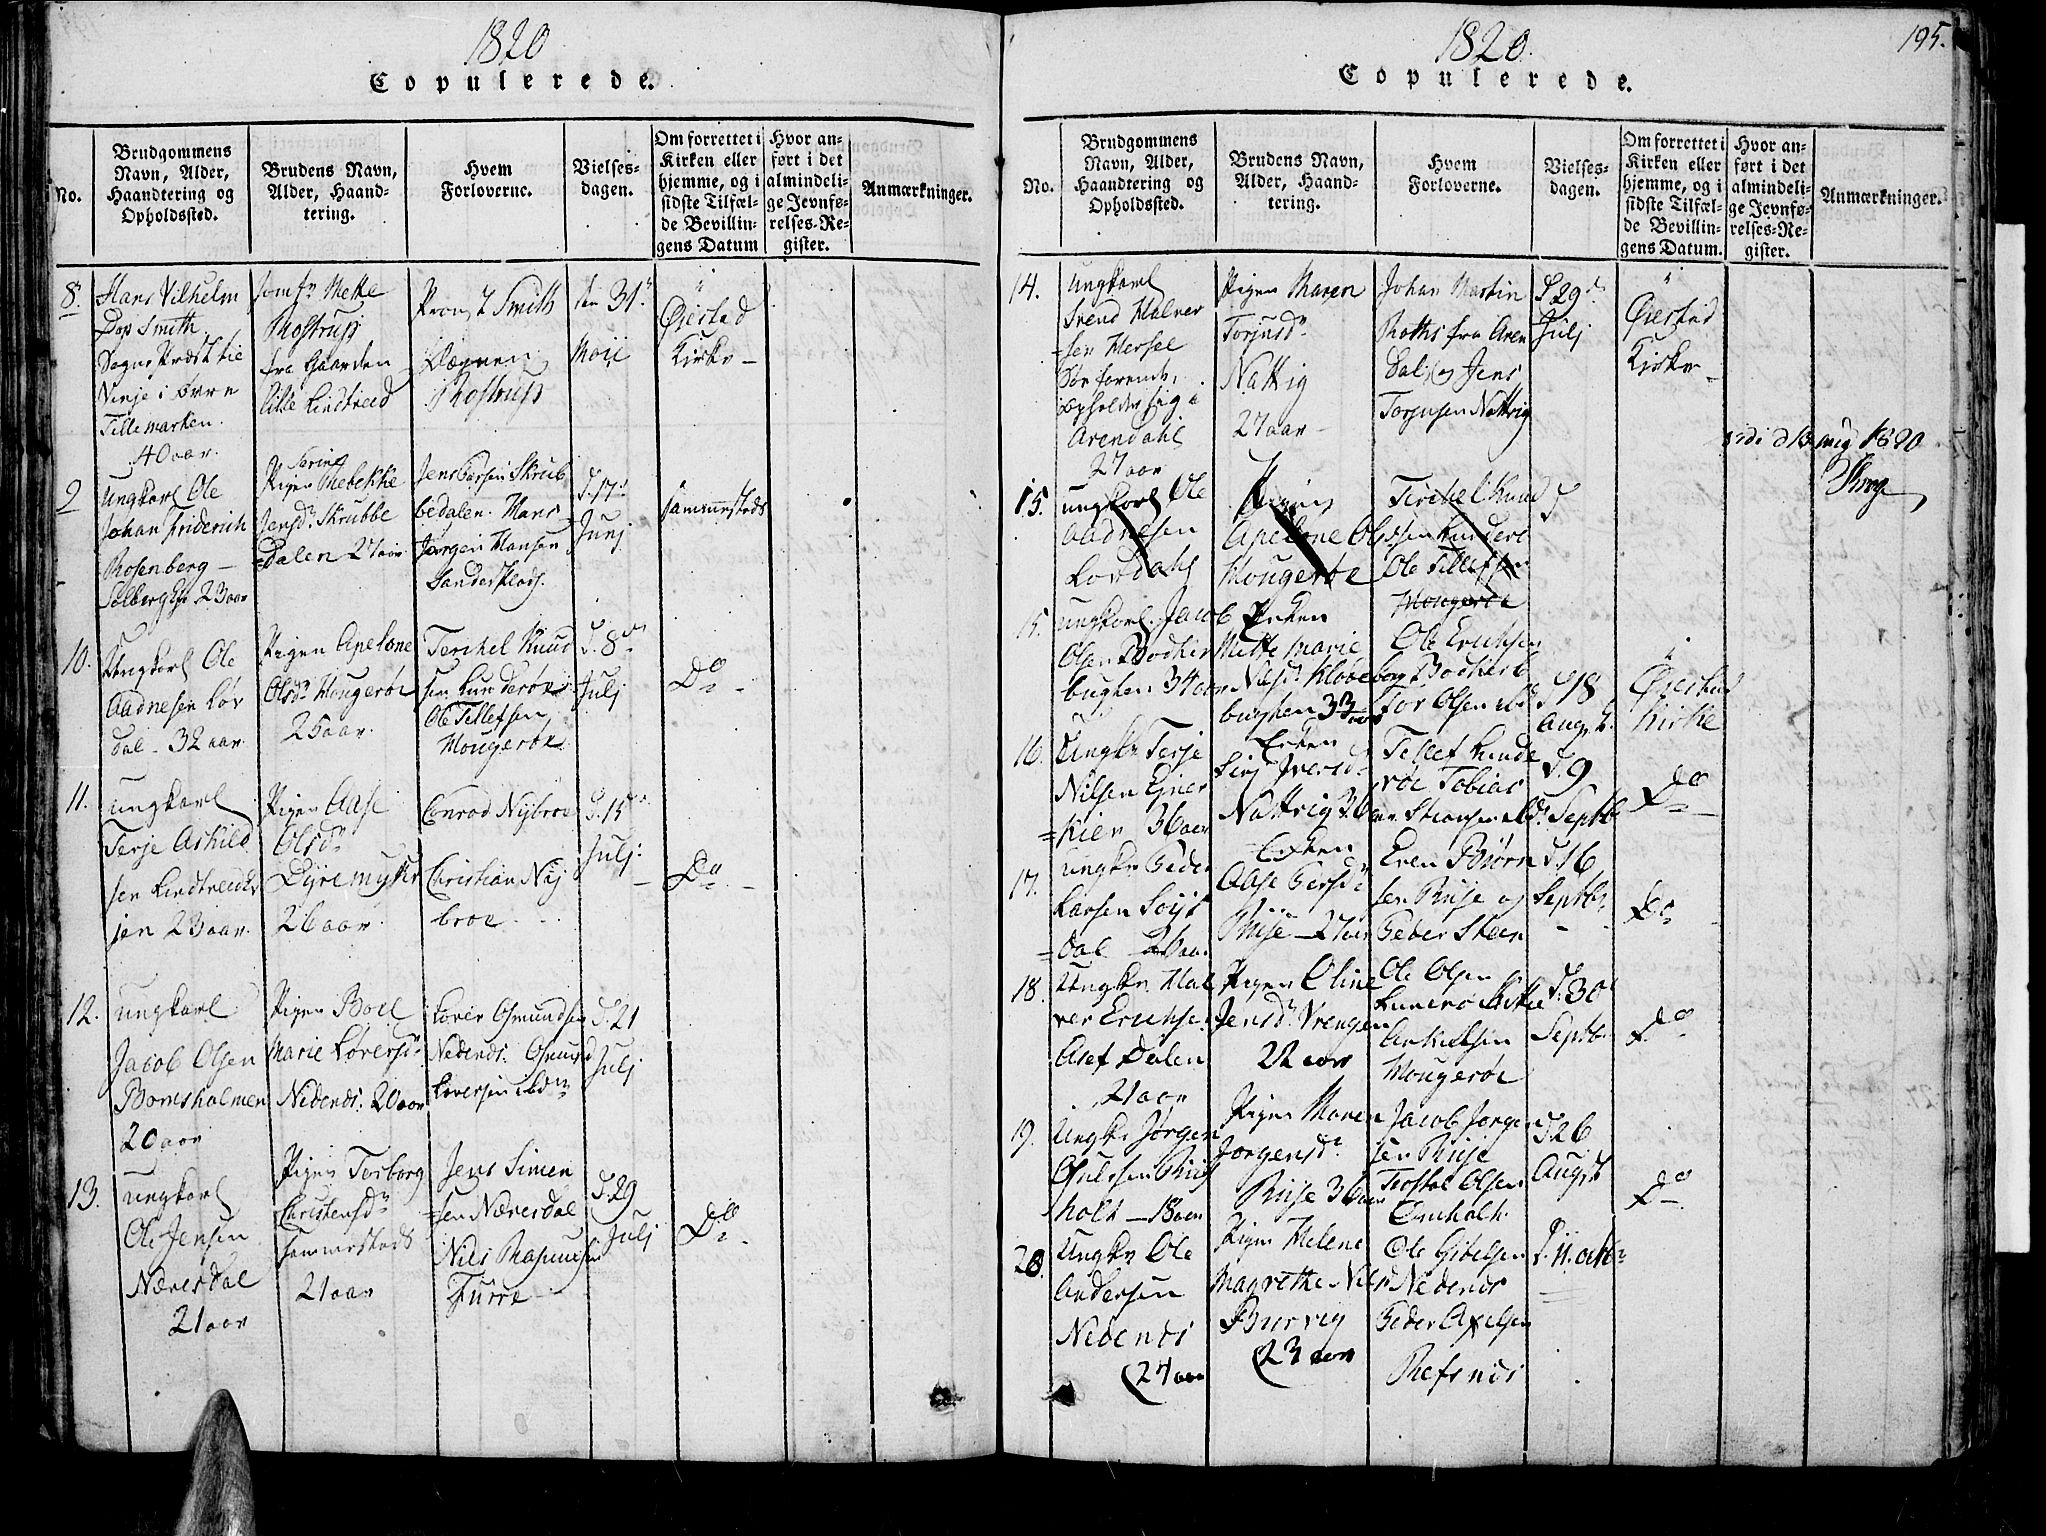 1820
Copulerede.
No.
Brudgommens
Navn, Alder,
Haandtering og
Opholdssted.
Brudens Navn,
Alder, Haand-
tering.
Hvem
Forloverne.
Vielses-
dagen.
Om forrettet i
Kirken eller
hjemme, og i
sidste Tilfæl-
de Bevillin-
gens Datum
Hvor an-
ført i det
almindeli-
ge Jevnfø-
relses-Re-
gister.
Anmærkninger.
8.
Hans Vilhelm
Dop Smith.
Sogne Præst til
Vinje i øvre
Tillemarken.
40 aar.
Jomfr Mette
Rostrup
fra Gaarden
Lille Lindtveed
Provst Smith
Rostrup
den 31
Maii
Øiestad
Kirke -
9
Ungkarl Ole
Johan Friderich
Rosenberg -
Solberg 23 aar
Pigen Mebekke
Jensdr Skrubbe
=Dalen 27 aar
Jens Larsen Skrub
bedalen. Hans
Jørgen Hansen
Sandersplads.
d. 17
Junj
sammesteds
10.
Ungkarl Ole
Aadnesen Løv
dal - 32 aar.
Pigen Apelone
Olsdr Mougerøe
25 aar.
Terchel Knud
sen Lunderøe
Ole Tellefsen
Mougerøe
d. 8
Julj
Do -
11.
Ungkarl
Terje Askild
sen Lindtveed
23 aar.
Pigen Aase
Olsdr
Dyremyhr
26 aar.
Conrad Nybroe
Christian Nÿ
broe
d. 15
Julj:
Do -
12.
Ungkarl
Jacob Olsen
Bomsholmen
20 aar
Pigen Boel
Marie Løversdr
Nedends. 20 aar
Løver Osmundsen
Nedends. Osmund
Løversen
d. 21
Julj
13.
Ungkarl
Ole Jensen
Næversdal
21 aar
Pigen Torborg
Christensdr
sammesteds
21 aar
Jens Simen
=sen Næversdal
Niels Rasmusen
Furre
d. 29
Julj
Do -
1820.
195.
Copulerede.
No.
Brudgommens
Navn, Alder,
Haandtering og
Opholdssted.
Brudens Navn,
Alder, Haand-
tering.
Hvem
Forloverne.
Vielses-
dagen.
Om forrettet i
Kirken eller
hjemme, og i
sidste Tilfæl-
de Bevillin-
gens Datum.
Hvor an-
ført i det
almindeli-
ge Jevnfø-
relses-Re-
gister.
Anmærkninger.
14.
Ungkarl
Svend Halvor
=sen Hersel
Søe farende,
opholder sig i
Arendahl
27 aar
Pigen Maren
Torjusdr
Nattvig
27 aar -
Johan Martin
Roths fra Aren
dal, og Jens
Torjusen Nattvig
d. 29
Julj
Øiestad
Kirke -
1820
15.
Ungkarl Ole
Aadnesen
Lovdahl
Pigen
Apelone Ols
Mougerøe
Terchel Knud
sen Lunderø
Ole Tellefsen
Mougerøe
d
15.
Ungkarl Jacob
Olsen Bodker
bughen 34 aar
Enken
Mette Marie
Nilsdr
bughen 33 aar
Ole Erichsen
Tor Olsen
d. 18
Aug.
Øiestad
Kirke
16.
Ungkr Terje
Nilsen Egner
=kier 36 aar
Enken
Sirj Iversdr
Nattvig 36 aar
Tellef Lunde
røe Tobias
d. 9
Septb.
Do -
17.
Ungkr Peder
Larsen
=dal 26 aar.
Enken
Aase Persdr
Riise - 27 aar
Even Biørn
sen Riise og
Peder Steen
d. 16
Septbr.
Do
18.
Ungkr. Hal
ver Erichsen
Asef Dalen
21 aar
Pigen Oline
Jensdr. Vrengen
22 aar
Ole Olsen
Mougerøe
d. 30
Septb.
Do
19.
Ungkr Jørgen
holt - 18 aar
Pigen Maren
Jorgensdr
Riise 36 aar
Jacob Jorgen
sen Riise
Torstal Olsen
Omholt
d. 26
Augst
Do
20.
Ungkr Ole
Andersen
Nedends
27 aar
Pigen Helene
Magrethe Nils
Burvig
23 aar
Ole Gibelsen
Nedends
Peder Axelsen
Refsnes
d. 11. octb